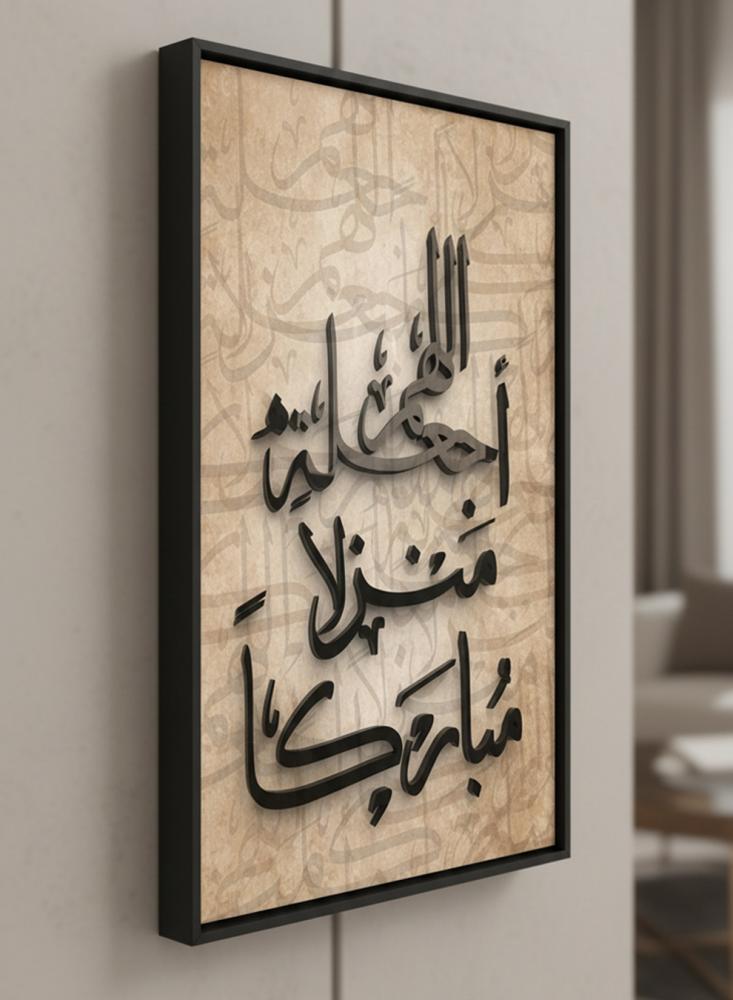 اللهم
أجعلهُ
مَنزلا
مُباركاً